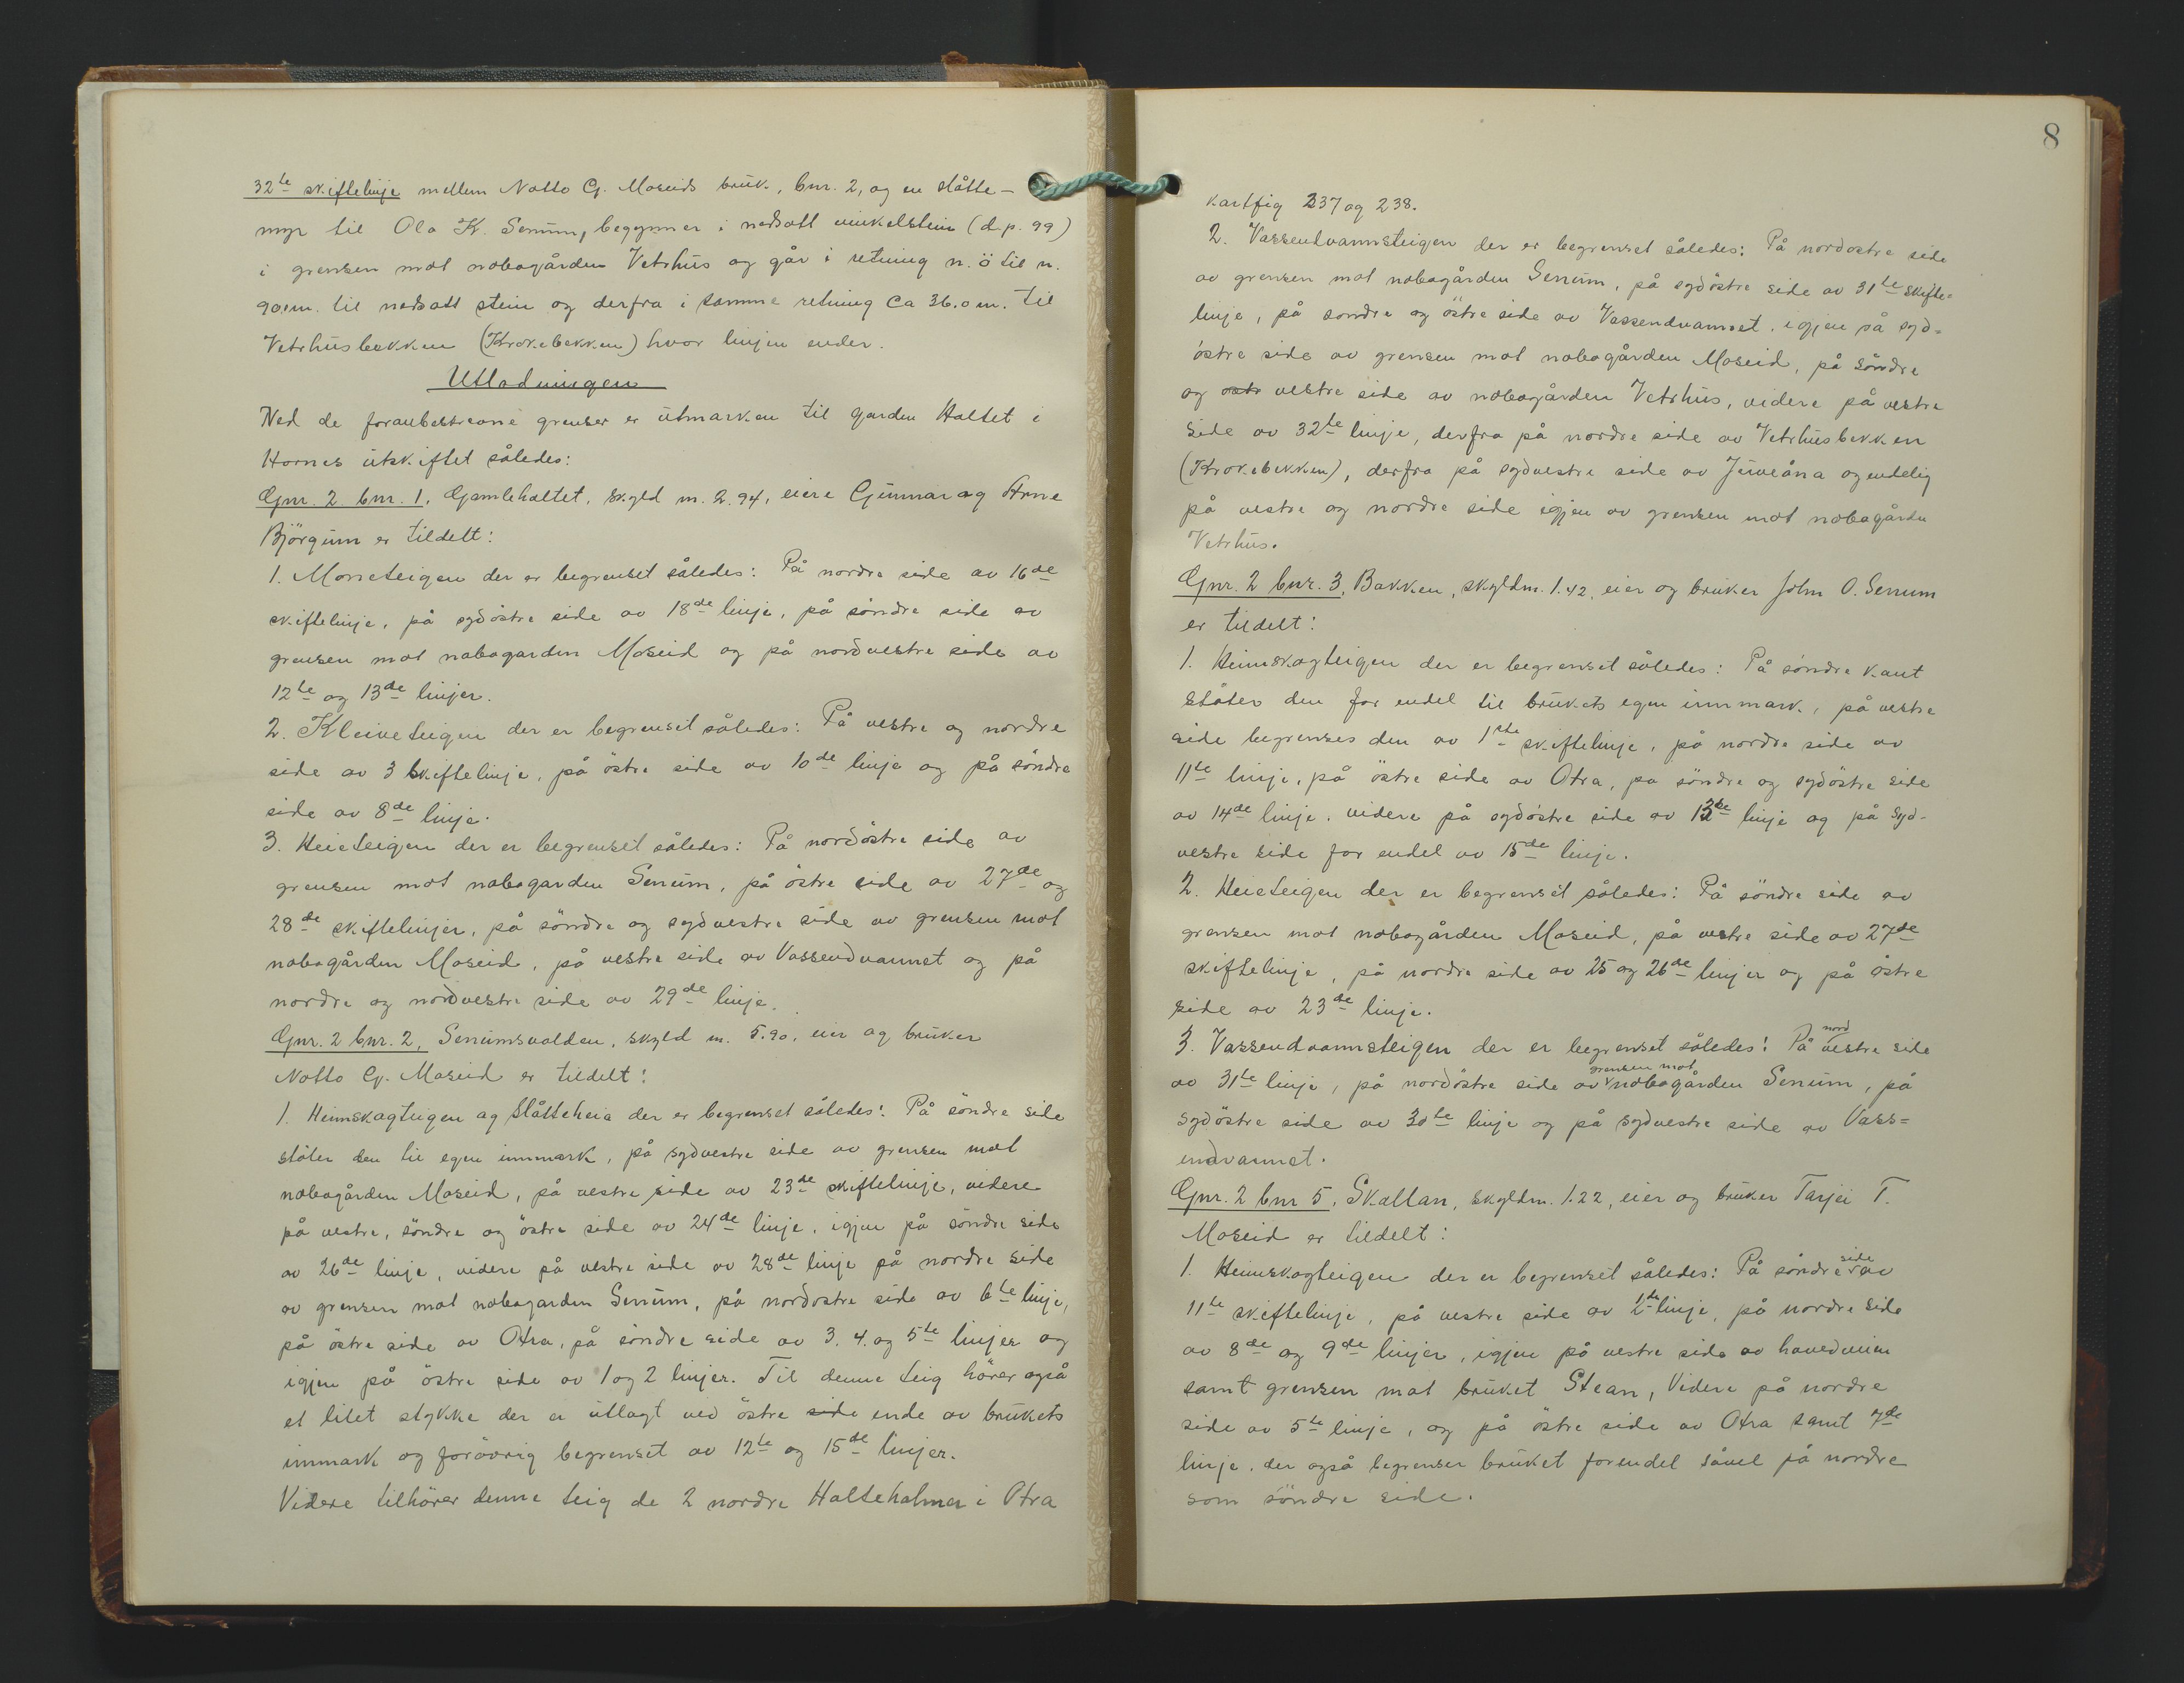 32te skiftelinje mellem Notto G. Moseids bruk, bnr. 2, og en slåtte-
myr til Ola K. Senum, begynner i nedsatt vinkelstein (d.p. 99)
i grensen mot nabogården Vetrhus og går i retning n. ö til n.
90.m. til nedsatt stein og derfra i samme retning ca 36.0 m. til
Vetrhusbekken (Krokebekken) hvor linjen ender.
Utlodningen
Ved de foranbeskrevne grenser er utmarken til garden Haltet i
Hornes utskiftet således:
Gnr. 2 bnr. 1, Gamlehaltet, skyld m. 2.94, eiere Gunnar og Arne
Björgum er tildelt:
1. Moneteigen der er begrenset således: På nordre side av 16de
skiftelinje, på sydöstre side av 18de linje, på söndre side av
grensen mot nabogarden Moseid og på nordvestre side av
12te og 13de linjer.
2. Kleiveteigen der er begrenset således: På vestre og nordre
side av 3 skiftelinje, på östre side av 10de linje og på söndre
side av 8de linje.
3. Heieteigen der er begrenset således: På nordöstre side av
grensen mot nabogarden Senum, på östre side av 27de og
28de skiftelinjer, på söndre og sydvestre side av grensen mot
nabogården Moseid, på vestre side av Vassendvannet og på
nordre og nordvestre side av 29de linje.
Gnr. 2 bnr. 2, Senumsvolden, skyld m. 5.90, eier og bruker
Notto G. Moseid er tildelt:
1. Heimskogteigen og Slåtteheia der er begrenset således: På söndre side
stöter den til egen innmark, på sydvestre side av grensen mot
nabogården Moseid, på vestre side av 23de skiftelinje, videre
på vestre, söndre og östre side av 24de linje, igjen på söndre side
av 26de linje, videre på vestre side av 28de linje på nordre side
av grensen mot nabogarden Senum, på nordostre side av 6te linje,
på östre side av Otra, på söndre side av 3. 4. og 5te linjer og
igjen på östre side av 1 og 2 linjer. Til denne teig hörer også
et litet stykke der er utlagt ved östre side ende av brukets
innmark og forövrig begrenset av 12te og 15de linjer.
Videre tilhörer denne teig de 2 nordre Halteholmer i Otra
8
kartfig 237 og 238.
2. Vassendvannsteigen der er begrenset således: På nordostre side
av grensen mot nabogården Senum, på sydöstre side av 31te skifte=
linje, på sondre og östre side av Vassendvannet, igjen på syd=
östre side av grensen mot nabogården Moseid, på söndre
og ostr vestre side av nabogården Vetrhus, videre på vestre
side av 32te linje, derfra på nordre side av Vetrhusbekken
(Krokebekken), derfra på sydvestre side av Juveåna og endelig
på vestre og nordre side igjen av grensen mot nabogården
Vetrhus.
Gnr. 2 bnr. 3, Bakken, skyldm. 1.42, eier og bruker John O. Senum
er tildelt:
1. Heimskogteigen der er begrenset således: På söndre kant
stöter den for endel til brukets egen innmark, på vestre
side begrenses den av 1ste skiftelinje, på nordre side av
11te linje, på östre side av Otra, på söndre og sydöstre side
av 14de linje, videre på sydöstre side av 13de linje og på syd-
vestre side for endel av 15de linje.
2. Heieteigen der er begrenset således: På söndre side av
grensen mot nabogården Moseid, på vestre side av 27de
skiftelinje, på nordre side av 25 og 26de linjer og på östre
side av 23de linje.
3. Vassendvannsteigen der er begrenset således: På nordvestre side
av 31te linje, på nordöstre side av grensen mot nabogården Senum, på
sydöstre side av 30te linje og på sydvestre side av Vass=
endvannet.
Gnr. 2 bnr 5, Skallan, skyldm. 1.22, eier og bruker Tarjei T.
Moseid er tildelt:
1. Heimskogteigen der er begrenset således: På söndre side av
11te skiftelinje, på vestre side av linje, på nordre side
av 8de og 9de linjer, igjen på vestre side av hovedveien
samt grensen mot bruket Stean, Videre på nordre
side av 5te linje, og på östre side av Otra samt 7de
linje, der også begrenser bruket forendel såvel på nordre
som söndre side.